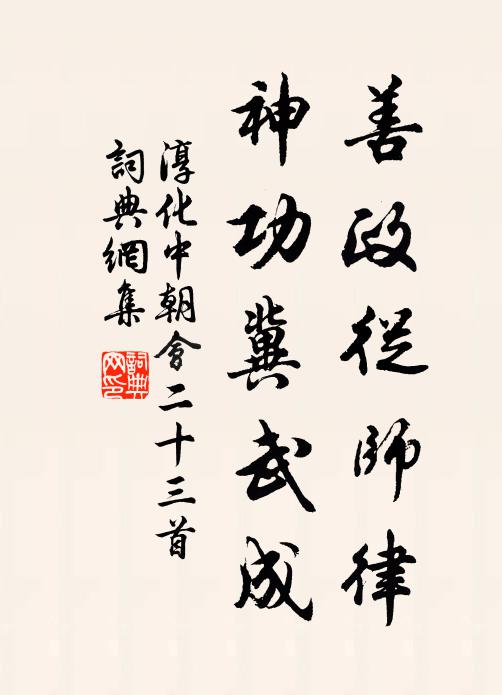 善政從師律
神功冀武成
淳化中朝會二十三首
詞典網集
詞典
网印